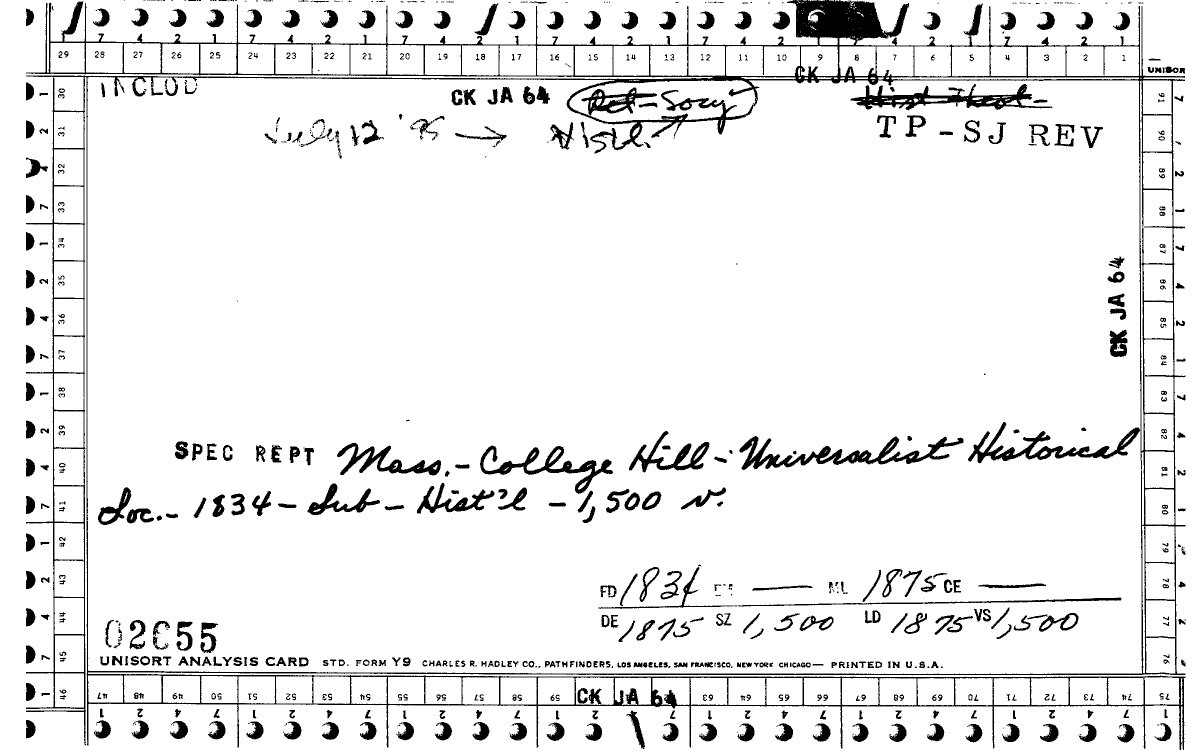 7 4 2 1 7 4 2 1 7 4 2 1 7 4 2 1 7 4 2 1 7 4 2 1
29 28 27 26 25 24 23 22 21 20 19 18 17 16 15 14 13 12 11 10 9 8 7 6 5 4 3 2 1
UNISOR
CK JA 64
INCLOD CK JA 64 Rel-Socy Hist Theol-
July 12 '95 → Hist'l. TP-SJ REV
CK JA 64
SPEC REPT Mass.-College Hill-Universalist Historical
Soc.- 1834 - Sub - Hist'l - 1,500 v.
FD 1834 EM — ML 1875 CE —
DE 1875 SZ 1,500 LD 1875 VS 1,500
02C55
UNISORT ANALYSIS CARD STD. FORM Y9 CHARLES R. HADLEY CO., PATHFINDERS, LOS ANGELES, SAN FRANCISCO, NEW YORK CHICAGO— PRINTED IN U.S.A.
30 31 32 33 34 35 36 37 38 39 40 41 42 43 44 45 46
91 90 89 88 87 86 85 84 83 82 81 80 79 78 77 76 75
47 48 49 50 51 52 53 54 55 56 57 58 59 CK JA 64 63 64 65 66 67 68 69 70 71 72 73 74 75